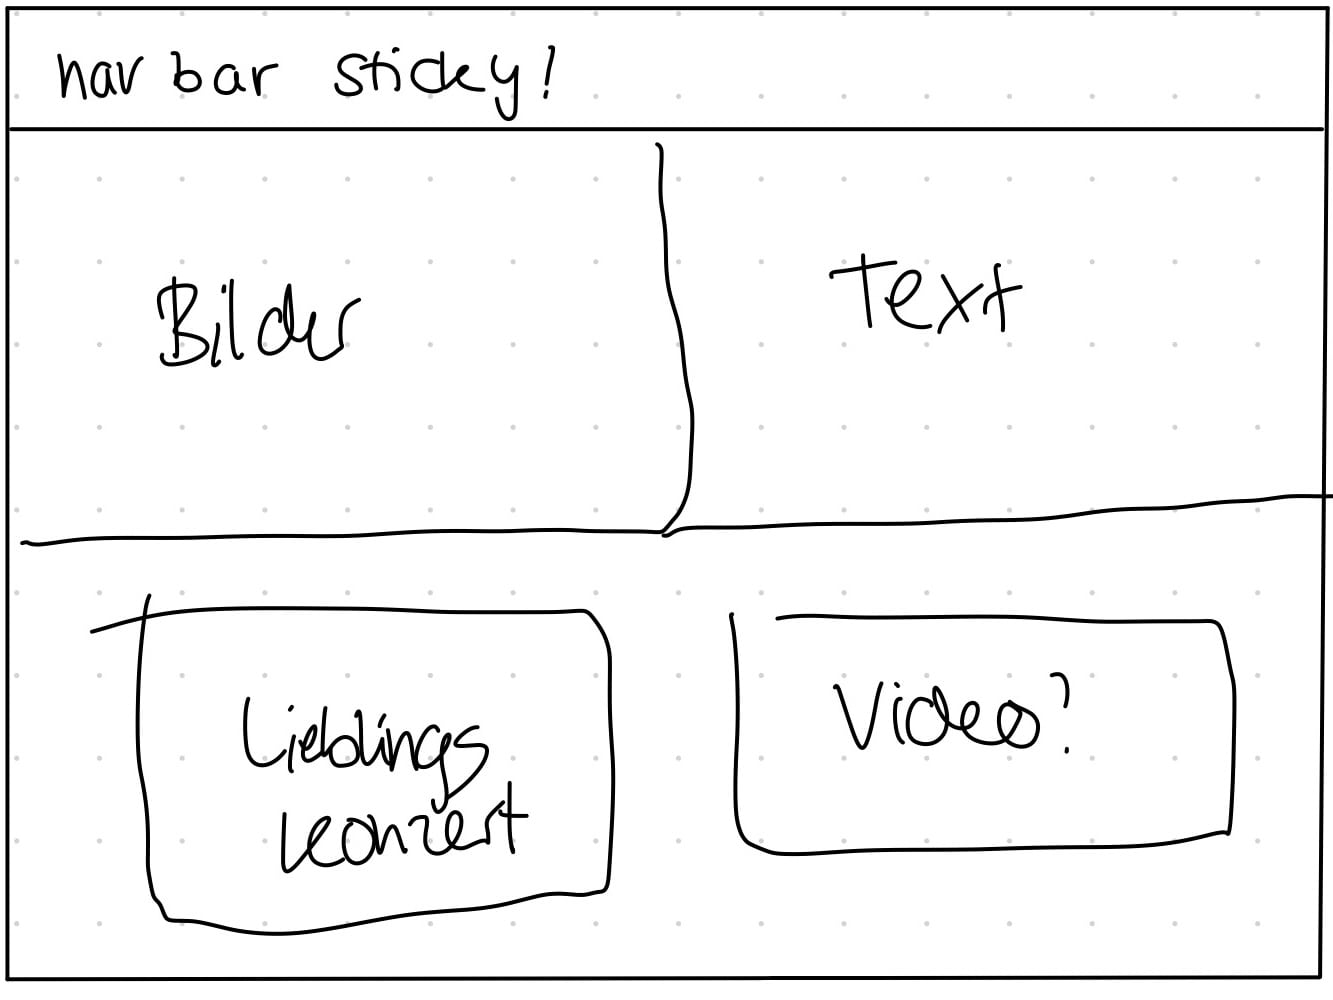 nav bar sticky!
Bilder
Text
Lieblings
konzert
Video?